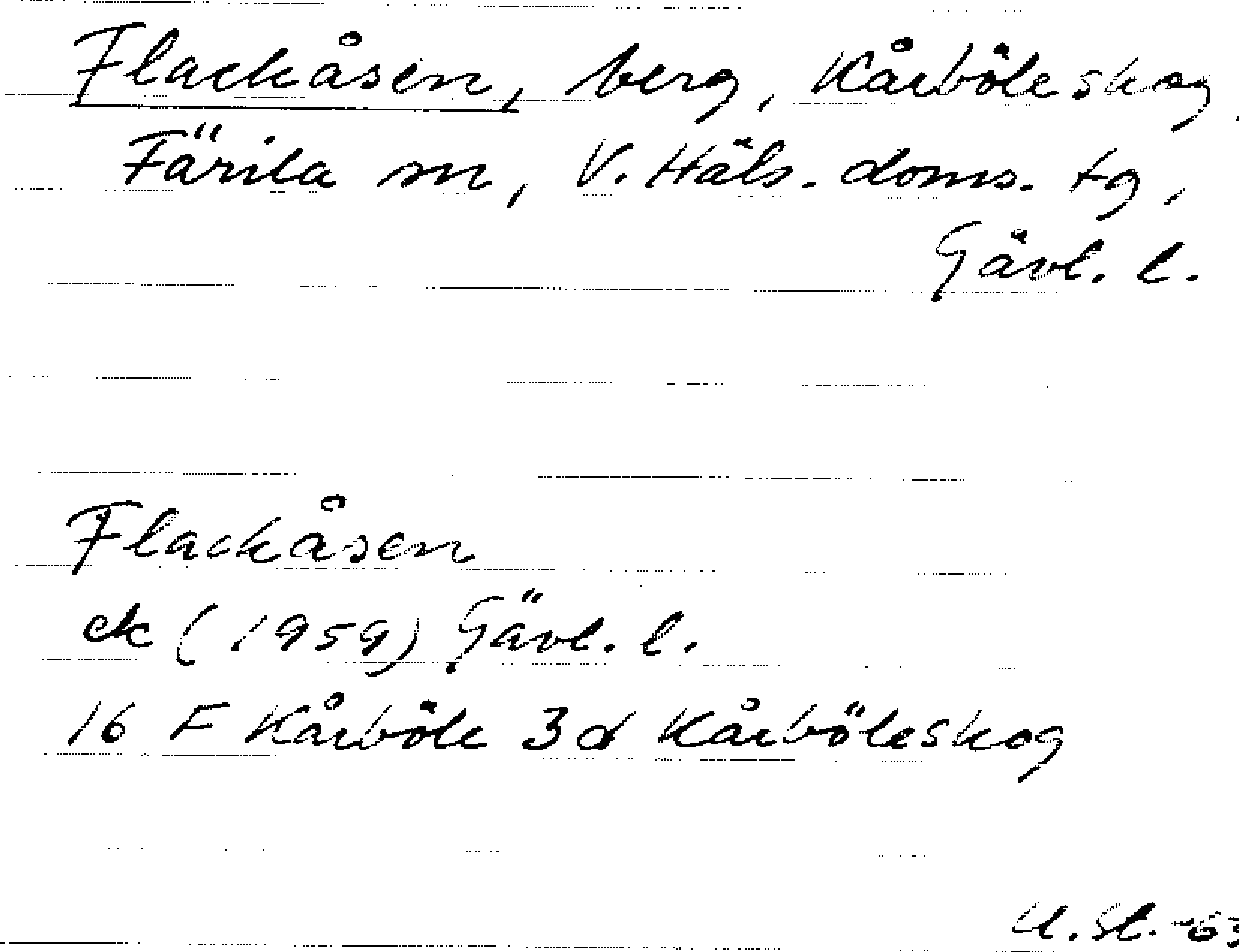 Flackåsen, berg, Kårböleskog,
Färila sn, V. Häls. doms. tg,
Gävl. l.
Flackåsen
ek (1959) Gävl. l.
16 F Kårböle 3d Kårböleskog
U. St. -63